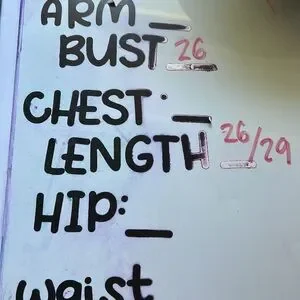 ARM __
BUST 26
CHEST: __
LENGTH 26/29
HIP: __
waist